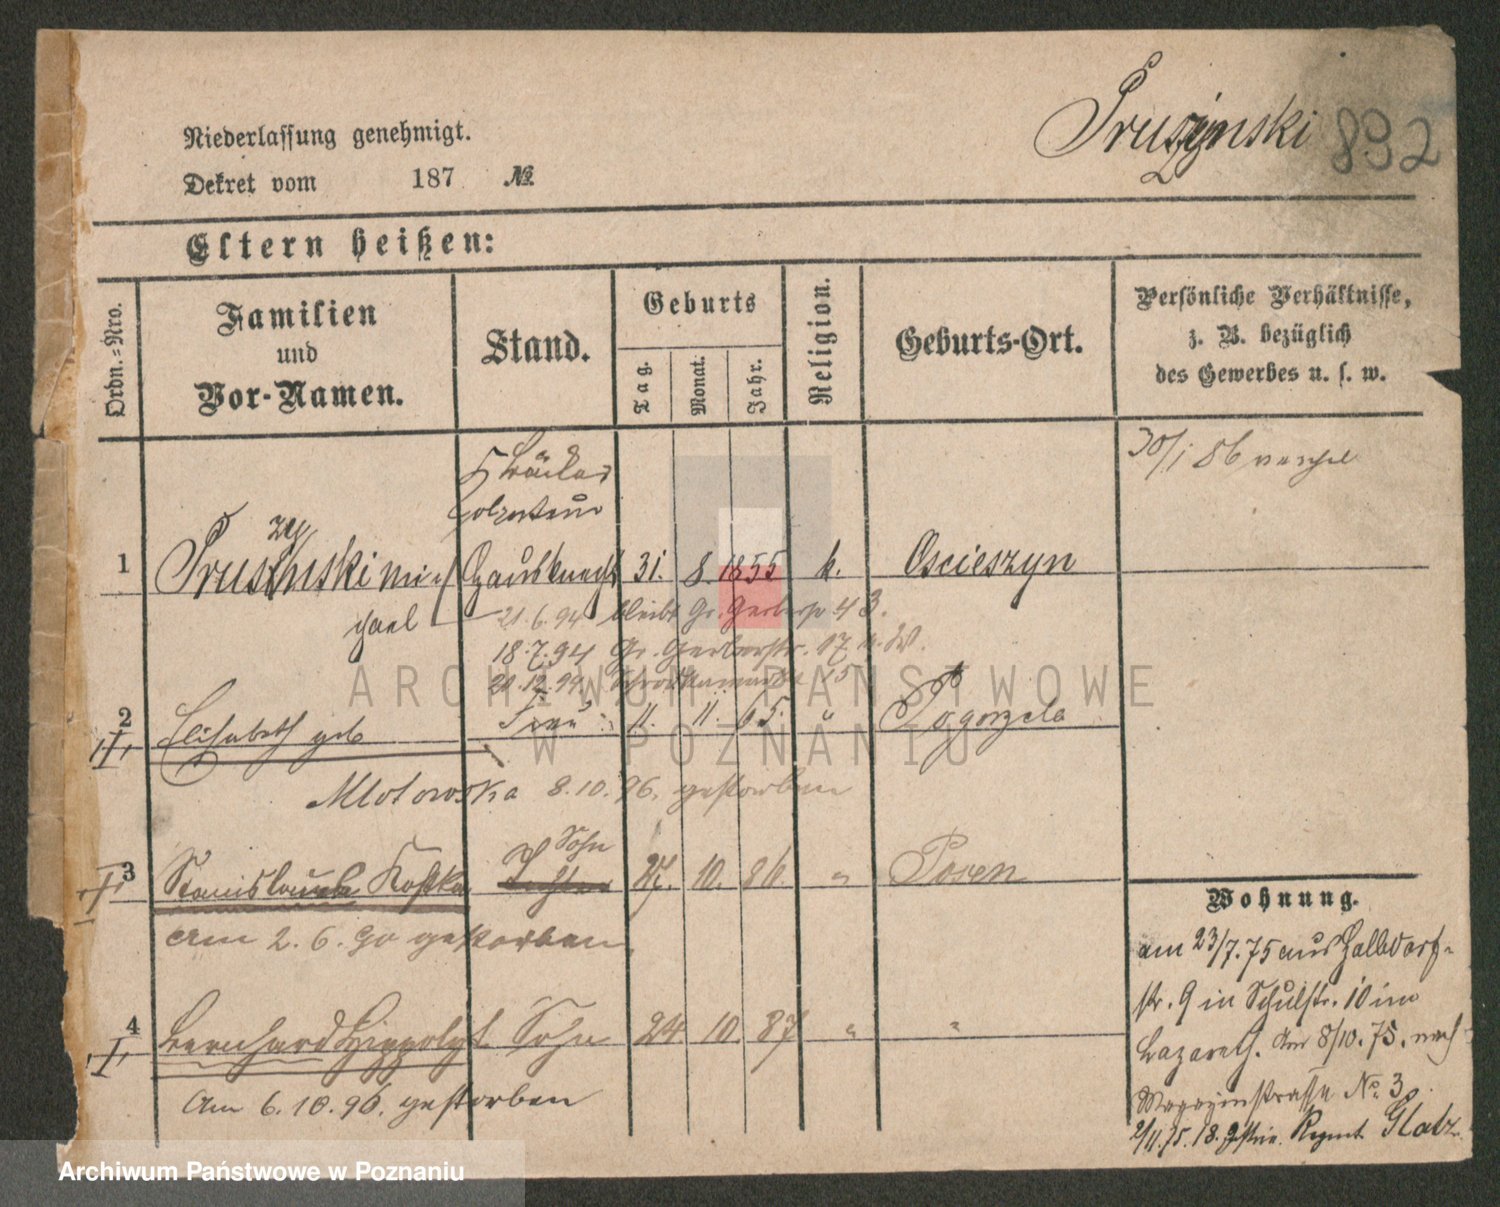 Pruszynski 832
Niederlassung genehmigt.
Dekret vom 187 №
Eltern heißen:
Ordn.=Nro.
Familien
und
Vor-Namen.
Stand.
Geburts
Tag.
Monat.
Jahr.
Religion.
Geburts-Ort.
Persönliche Verhältnisse,
z. B. bezüglich
des Gewerbes u. s. w.
30/1 86
1 Pruszynski Mi- Hausknecht 31. 8. 1855 k. Oscieszyn
chael
21.6.94 bleibt Gr. Gerberstr 43.
18.7.94 Gr. Gerberstr. 17
20.12.94 15
2 Elisabeth geb Frau 11. 11. 65. " Pogorzela
Mlotowska 8.10.96. gestorben
Sohn
3 Stanislaus Kostka Tochter 27. 10. 86. " Posen
Am 2.6.90 gestorben
4 Bernhard Hippolyt Sohn 24 10. 87 " "
Am 6.10.96. gestorben
Wohnung.
am 23/7.75 aus Halbdorf-
str. 9 in Schulstr. 10 im
Lazareth. Am 8/10.75. nach
Magazinstrasse No. 3
2/11.75. 18. Regmt. Glatz
ARCHIWUM PAŃSTWOWE
W POZNANIU
Archiwum Państwowe w Poznaniu